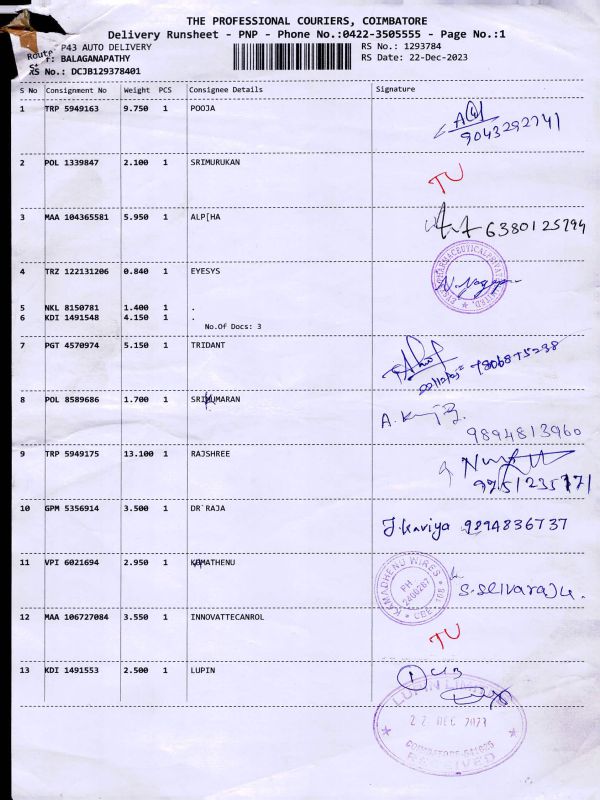 THE PROFESSIONAL COURIERS, COIMBATORE
Delivery Runsheet - PNP - Phone No.:0422-3505555 - Page No.:1
Route P43 AUTO DELIVERY
RS No.: 1293784
BALAGANAPATHY
RS Date: 22-Dec-2023
RS No.: DCJB129378401
S No Consignment No Weight PCS Consignee Details Signature
1 TRP 5949163 9.750 1 POOJA
9043292741
2 POL 1339847 2.100 1 SRIMURUKAN
TU
3 MAA 104365581 5.950 1 ALP[HA
6380125794
4 TRZ 122131206 0.840 1 EYESYS
5 NKL 8150781 1.400 1 .
6 KDI 1491548 4.150 1 .
No.Of Docs: 3
7 PGT 4570974 5.150 1 TRIDANT
8 POL 8589686 1.700 1 SRIKUMARAN
9894813960
9 TRP 5949175 13.100 1 RAJSHREE
10 GPM 5356914 3.500 1 DR`RAJA
J.Kaviya 9894836737
11 VPI 6021694 2.950 1 KAMATHENU
KAMADHENU WIRES
PH
2406267
CBE
S.Selvaraju.
12 MAA 106727084 3.550 1 INNOVATTECANROL
TU
13 KDI 1491553 2.500 1 LUPIN
1
LUPIN LIMITED
22 DEC 2023
RECEIVED